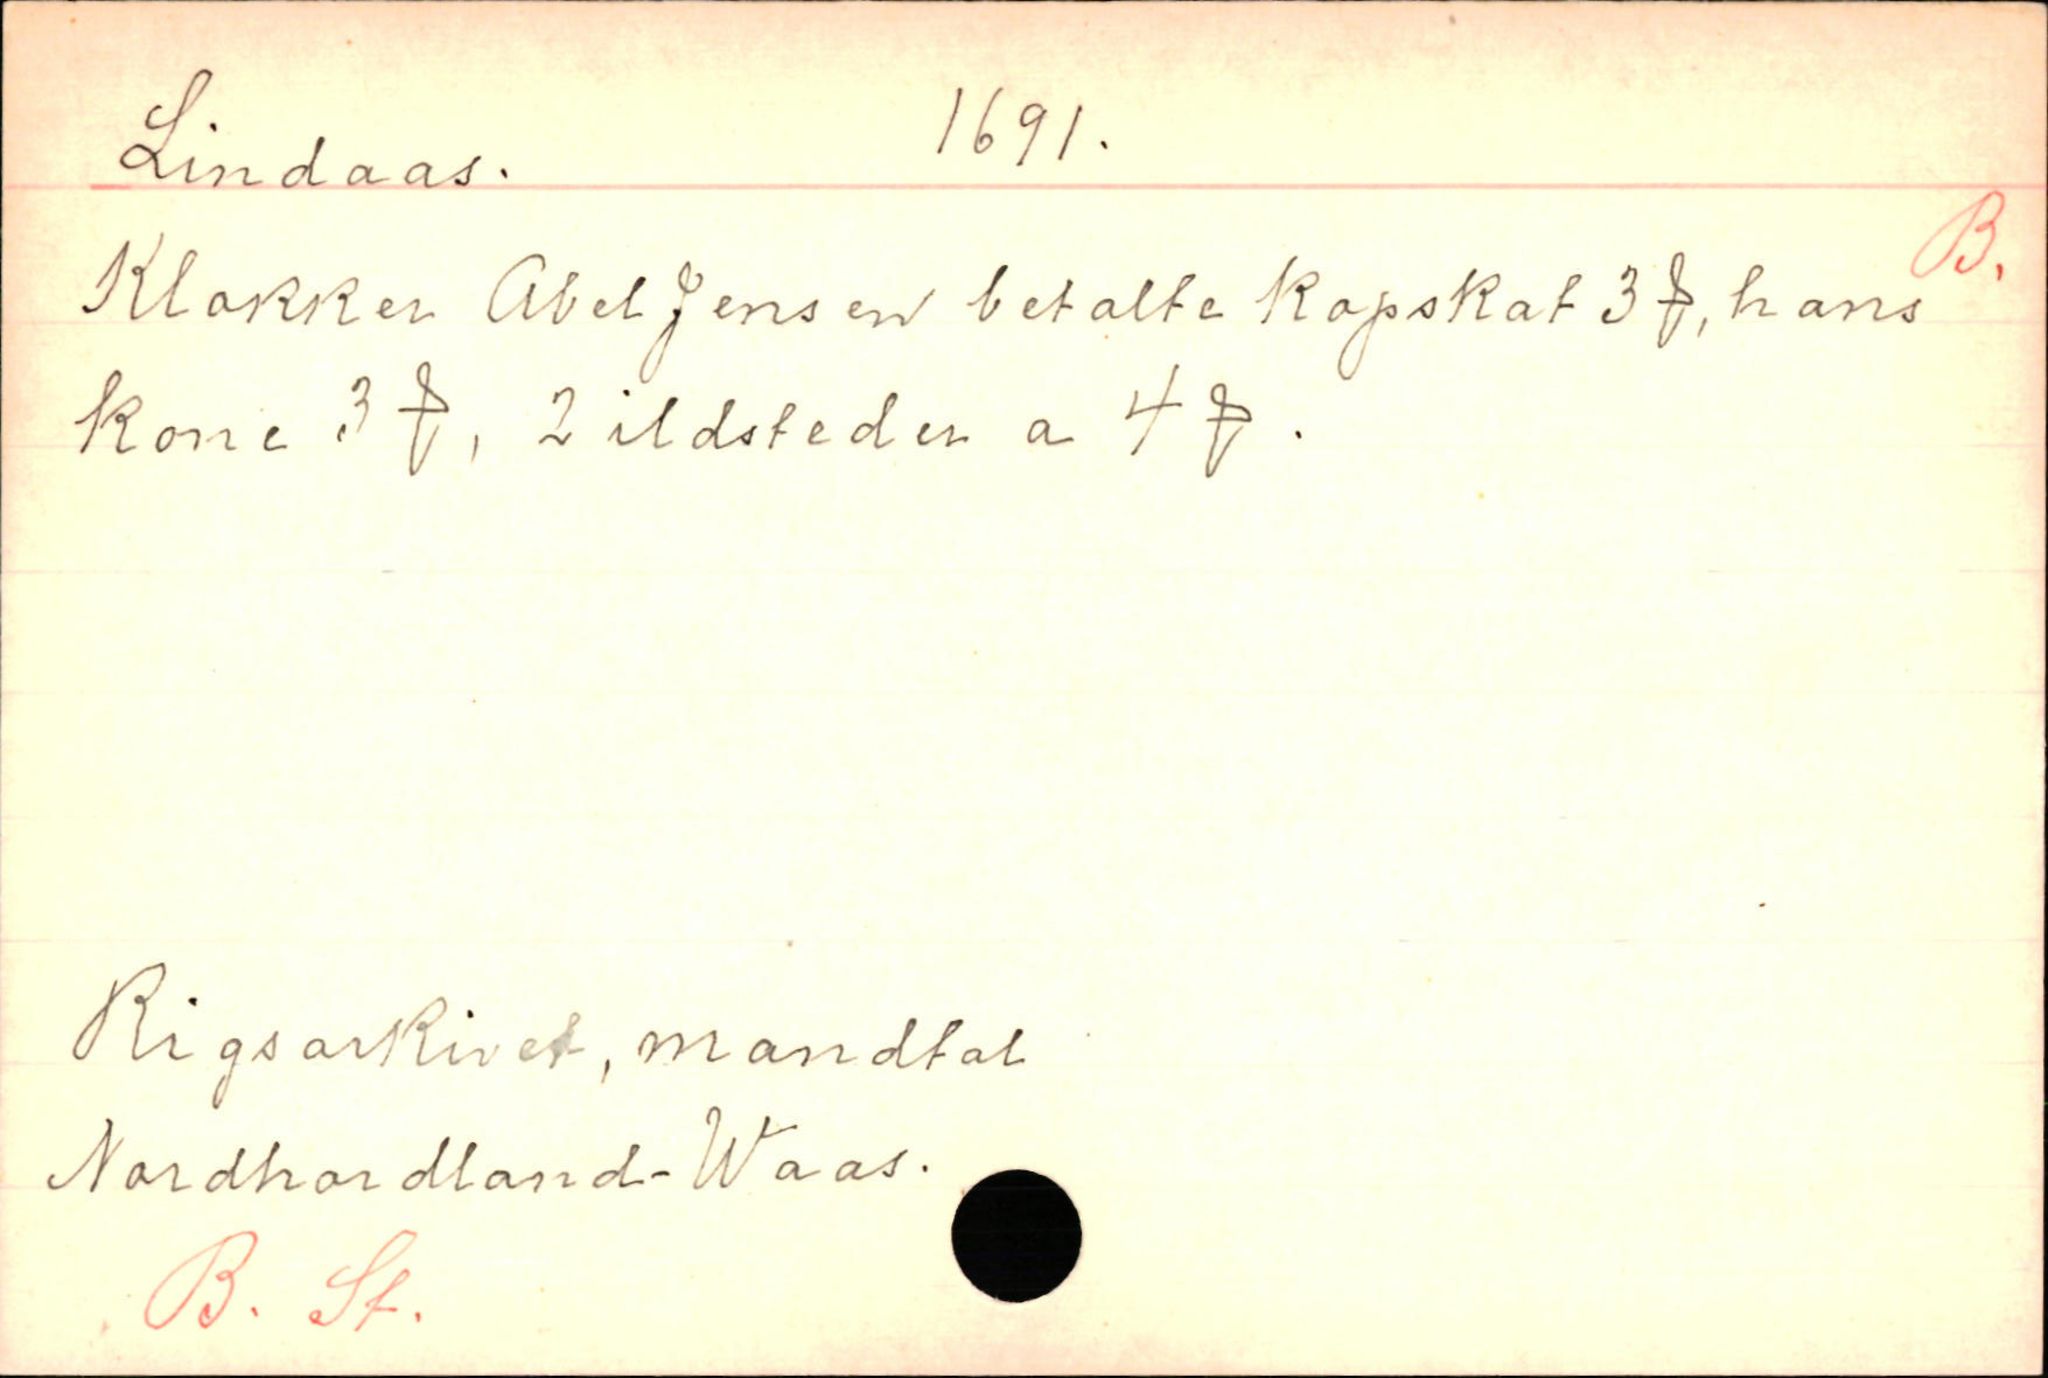 Lindaas. 1691.
B.
Klokker Abel Jensen betalte kopskat 3 ꝑ, hans
kone 3 ꝑ, 2 ildsteder a 4 ꝑ.
Rigsarkivet, mandtal
Nordhordland-Waas.
B. St.